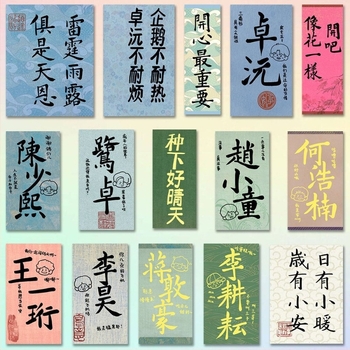 雷霆雨露
俱是天恩
企鹅不耐热
卓沅不耐烦
開心最重要
卓沅
開吧
像花一樣
陳少熙
鷺卓
种下好晴天
趙小童
何浩楠
王一珩
李昊
蒋敦豪
李耕耘
日有小暖
歲有小安